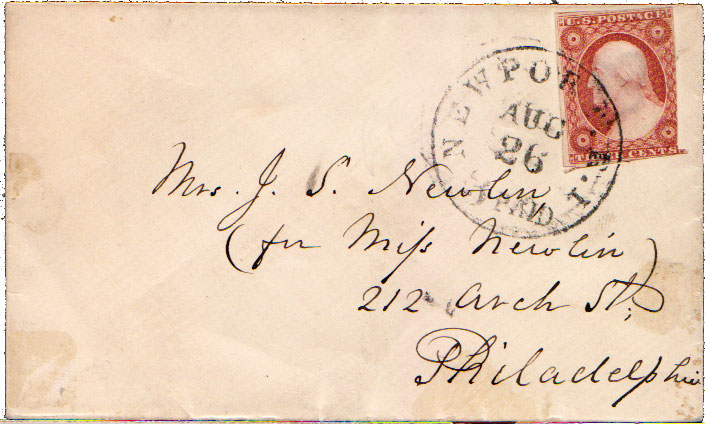 U.S. POSTAGE
THREE CENTS
NEWPORT R.I.
AUG
26
PAID
Mrs. J. S. Newlin
(for Miss Newlin)
212 Arch St;
Philadelphia